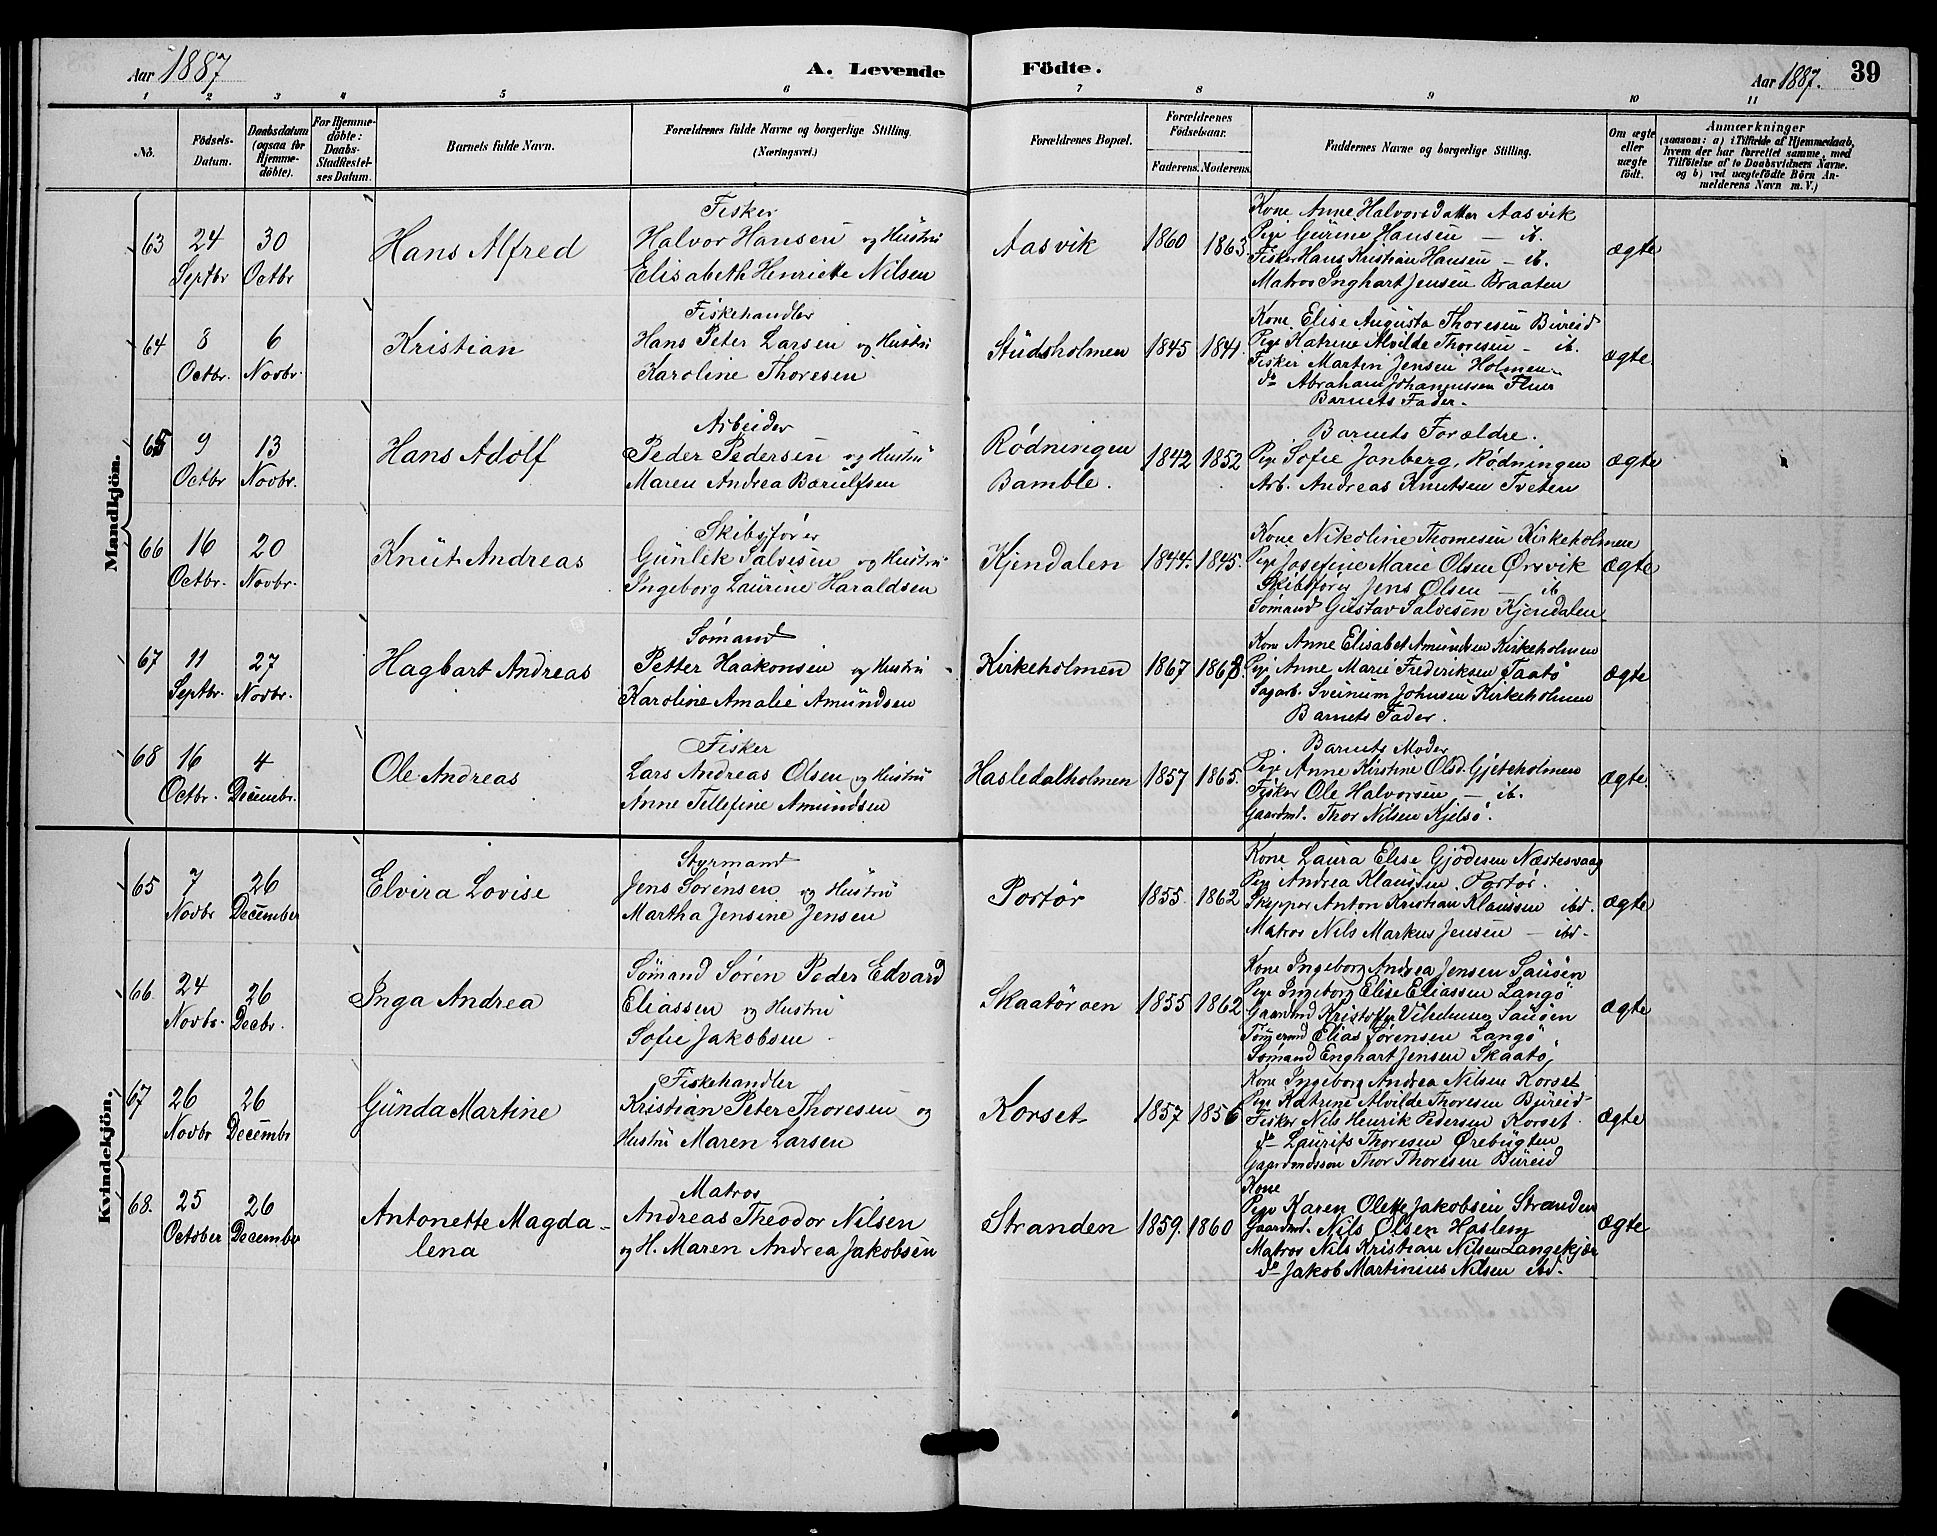 Aar 1887
A. Levende Födte.
Aar 1887. 39
1 2 3 4 5 6 7 8 9 10 11
No.
Födsels-Datum.
Daabsdatum (ogsaa for Hjemme-döbte).
For Hjemme-döbte: Daabs-Stadfæstel-ses Datum.
Barnets fulde Navn.
Forældrenes fulde Navne og borgerlige Stilling.
(Næringsvei.)
Forældrenes Bopæl.
Forældrenes Födselsaar.
Faderens. Moderens.
Faddernes Navne og borgerlige Stilling.
Om ægte eller uægte födt.
Anmærkninger
(saasom: a) i Tilfælde af Hjemmedaab,
hvem der har forrettet samme, med
Tilföielse af to Daabsvidners Navne.
og b) ved uægtefödte Börn An-
melderens Navn m. V.)
Mandkjön.
63 24 Septbr 30 Octbr
Hans Alfred
Fisker
Halvor Hansen og Hustru
Elisabeth Henriette Nilsen
Aasvik 1860 1863
Kone Anne Halvorsdatter Aasvik
Pige Gurine Hansen — ib.
Fisker Hans Kristian Hansen — ib.
Matros Inghart Jensen Braaten
ægte
64 8 Octbr. 6 Novbr.
Kristian
Fiskehandler
Hans Peter Larsen og Hustru
Karoline Thoresen
Studsholmen 1845 1841.
Kone Elise Augusta Thoresen Bureid
Pige Katrine Alvilde Thoresen — ib.
Fisker Martin Jensen Holmen
do Abraham Johannessen
Barnets Fader.
ægte
65 9 Octbr 13 Novbr.
Hans Adolf
Arbeider
Peder Pedersen og Hustru
Maren Andrea Bærulfsen
Rødningen
Bamble. 1842 1852
Barnets Forældre.
Pige Sofie Jonberg, Rødningen
Arb. Andreas Knutsen Tveten
ægte
66 16 Octbr. 20 Novbr.
Knut Andreas
Skibsfører
Gunlek Salvesen og Hustru
Ingeborg Laurine Haraldsen
Kjendalen 1844. 1845.
Kone Nikoline Thomesen Kirkeholmen
Pige Josefine Marie Olsen Ørvik
Skibsfører Jens Olsen — ib
Sømand Gustav Salvesen Kjendalen
ægte
67 11 Septbr. 27 Novbr.
Hagbart Andreas
Sømand
Petter Haakonsen og Hustru
Karoline Amalie Amundsen
Kirkeholmen 1867 1868.
Kone Anne Elisabet Amundsen Kirkeholmen
Pige Anne Marie Frederiksen Taatø
Sagarb. Sveinum Johnsen Kirkeholmen
Barnets Fader.
ægte
68 16 Octbr. 4 Decembr.
Ole Andreas
Fisker
Lars Andreas Olsen og Hustru
Anne Tellefine Amundsen
Hasledalholmen 1857 1865.
Barnets Moder
Pige Anne Kirstine Olsd. Gjeteholmen
Fisker Ole Halvorsen — ib.
Gaardmd. Thor Nilsen Kjelsø.
ægte.
Kvindekjön.
65 7 Novbr 26 December
Elvira Lovise
Styrmand
Jens Sørensen og Hustru
Martha Jensine Jensen
Portør 1855. 1862
Kone Laura Elise Gjødesen Næstesvaag
Pige Andrea Klausen Portør.
Skipper Anton Kristian Klausen ibd.
Matros Nils Markus Jensen — ibd.
ægte
66. 24 Novbr. 26 Decbr.
Inga Andrea
Sømand Søren Peder Edvard
Eliassen og Hustru
Sofie Jakobsen
Skaatørøen 1855 1862
Kone Ingeborg Andrea Jensen Sauøen
Pige Ingeborg Elise Eliassen Langø
Gaardmd Kristoffer Vilhelmsen Sauøen
Tømmermd Elias Sørensen Langø
Sømand Enghart Jensen Skaatø
ægte
67 26 Novbr 26 Decembr
Gunda Martine
Fiskehandler
Kristian Peter Thoresen og
Hustru Maren Larsen
Korset 1857 1856
Kone Ingeborg Andrea Nilsen Korset
Pige Katrine Alvilde Thoresen Bureid
Fisker Nils Henrik Pedersen Korset
do Laurits Thoresen Ørebugten
Gaardmdssøn Thor Thoresen Bureid
ægte
68. 25 October 26 December
Antonette Magda-
lena
Matros
Andreas Theodor Nilsen
og H. Maren Andrea Jakobsen
Stranden 1859. 1860
Kone
Pige Karen Olette Jakobsen Stranden
Gaardmd. Nils Olsen Hasley
Matros Nils Kristian Nilsen Langekjær
do Jakob Martinius Nilsen ibd.
ægte